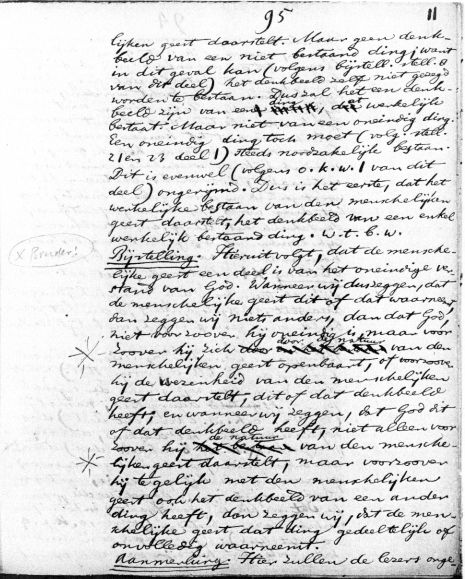 95
11
lijken geest daarstelt. Maar geen denk-
beeld van een niet bestaand ding; want
in dit geval kan (volgens bijstell. stell. 8
van dit deel) het denkbeeld zelf niet gezegd
worden te bestaan. Dus zal het een denk-
beeld zijn van een ding, dat werkelijk
bestaat. Maar niet van een oneindig ding.
Een oneindig ding toch moet (volg. stell.
21 en 23 deel 1) steeds noodzakelijk bestaan.
Dit is evenwel (volgens o.k.w. 1 van dit
deel) ongerijmd. Dus is het eerste, dat het
werkelijke bestaan van den menschelijken
geest daarstelt, het denkbeeld van een enkel
werkelijk bestaand ding. W.t.b.w.
x Bruder!
Bijstelling. Hieruit volgt, dat de mensche-
lijke geest een deel is van het oneindige ver-
stand van God. Wanneer wij dus zeggen, dat
de menschelijke geest dit of dat waarneemt,
dan zeggen wij niets anders, dan dat God,
niet voor zoover hij oneindig is, maar voor
zoover hij zich door de natuur van den
menschelijken geest openbaart, of voorzoover
hij de wezenheid van den menschelijken
geest daarstelt, dit of dat denkbeeld
heeft; en wanneer wij zeggen, dat God dit
of dat denkbeeld heeft, niet alleen voor
zoover hij de natuur van den mensche-
lijken geest daarstelt, maar voorzoover
hij tegelijk met den menschelijken
geest ook het denkbeeld van een ander
ding heeft, dan zeggen wij, dat de men-
schelijke geest dat ding gedeeltelijk of
onvolledig waarneemt.
Aanmerking. Hier zullen de lezers onge